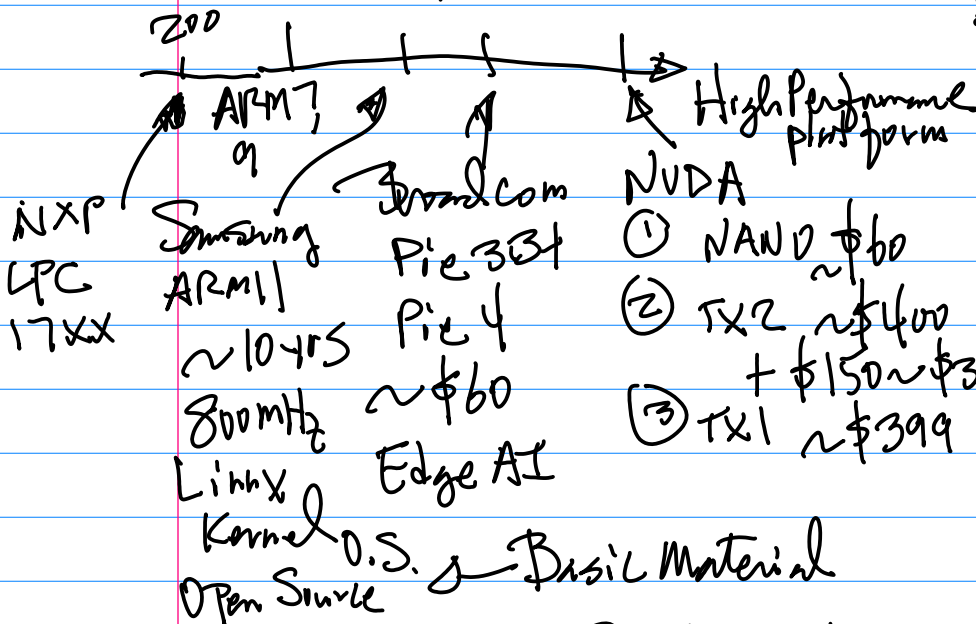 200
ARM7,
9
High Performance
platform
NXP
LPC
17XX
Samsung
ARM11
~10yrs
800mHz
Linux
Kernel O.S.
Open Source
Broadcom
Pie 3B+
Pie 4
~$60
Edge AI
NVDA
① NANO ~$60
② TX2 ~$400
+ $150~$3
③ TX1 ~$399
Basic Material